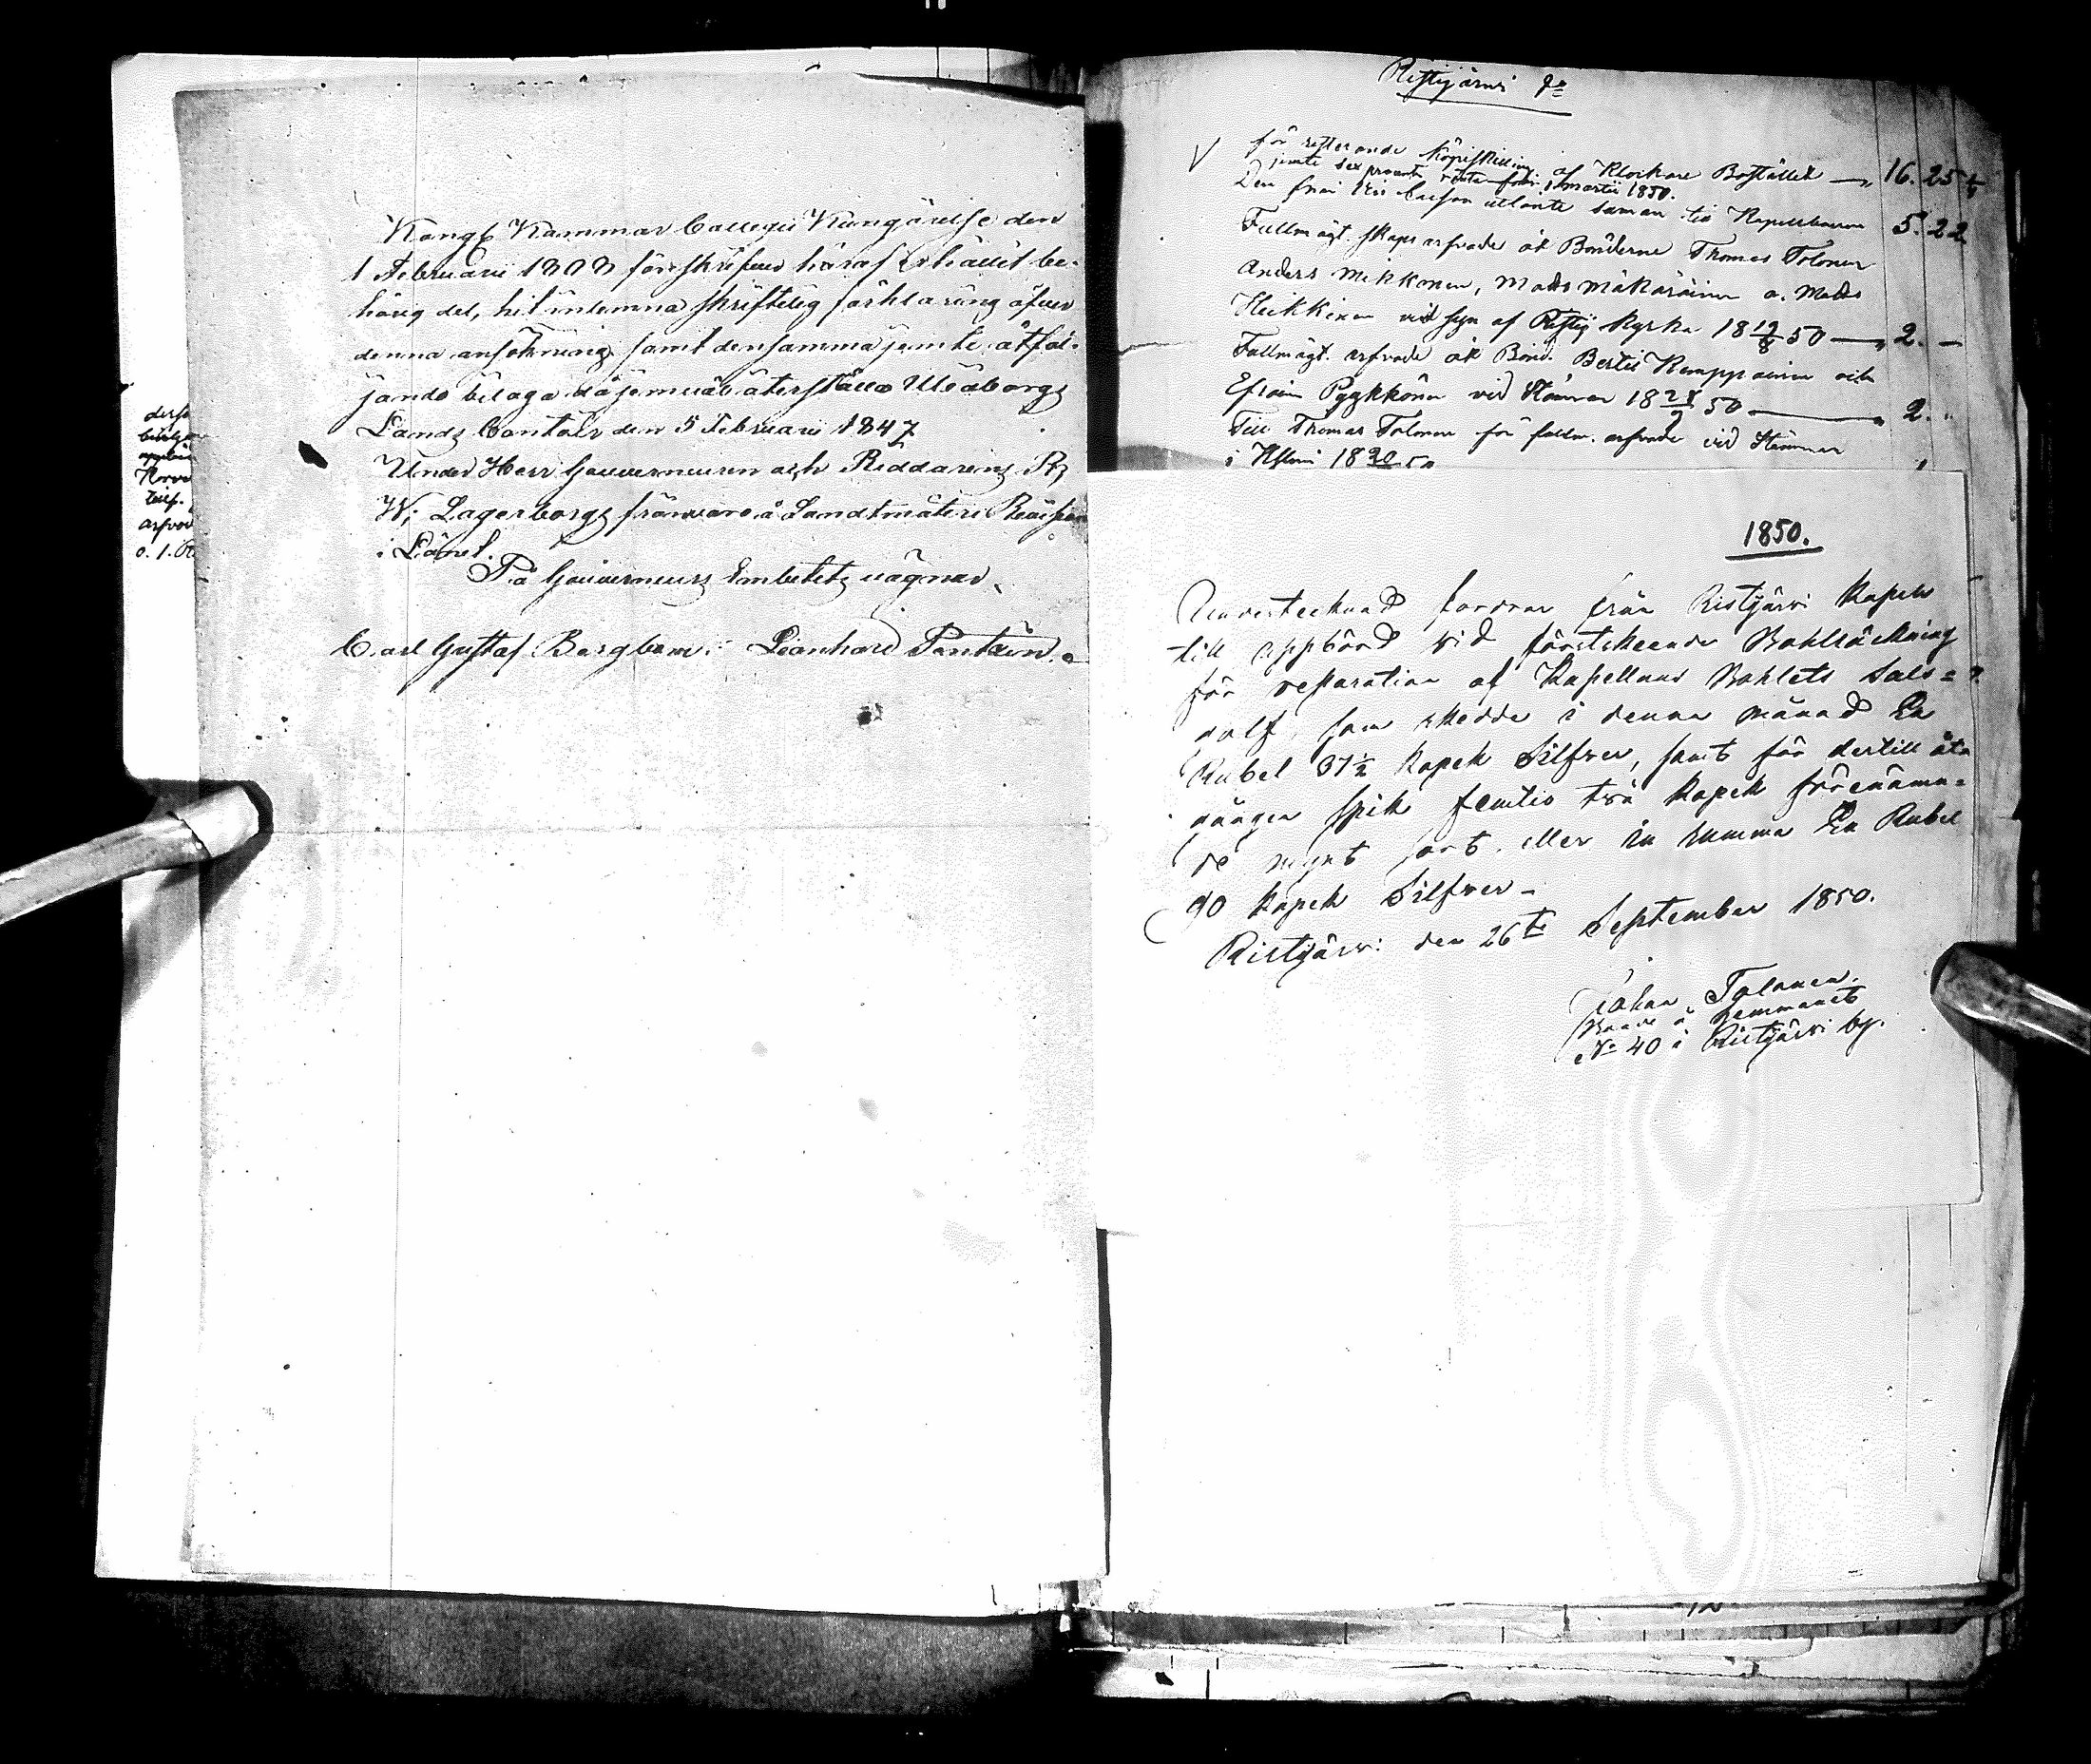 Kongl Kammar Collegii Kungörelse den
1 Februarii 1808 förskrifvna häraf erhållit be-
hörig del, hit inlemna skriftelig förklaring öfver
denna ansökning samt densamma jemte åtföl-
jande bilaga återställa Uleåborgs
Lands Contoir den 5 Februarii 1847
Under Herr Gouverneurens och Riddarens R;
W; Lagerborgs frånvaro å Landtmäteri Revision
i Länet.
På Gouverneurs Embetets vägnar
Carl Gustaf Bergbom. Leonhard
o. 1.
Ristijärvi
V för resterande köpeskilling af Klockare Bostället — 16. 25
jemte sex procents ränta 1 martii 1850.
Den från utlånte summan till Kapellkassan 5. 22
Fullmägt. skaps arfvode åt Bönderne Thomas Tolonen
Anders Mikkonen, Matts Mäkäräinen o. Matts
Heikkinen vid syn af Ristij Kyrka 18 19/8 50 — 2. —
Fullmägt. arfvode åt Bönd. Bertil Kemppainen och
Efraim Pyykkönen vid Stämman 18 50 — 2. "
Till Thomas Tolonen för fullm. arfvode vid Stämman
i 18 50
1850.
Undertecknad fordrar från Ristijärvi Kapell
till uppbörd vid förstskeende Bohlräckning
för reparation af Kapellans Bohlets Sals=
golf, som skedde i denna månad En
Rubel 37½ kopek Silfver, samt för dertill åt
gången spik femtio två kopek förenämn=
de mynt sort. eller in summa En Rubel
90 kopek Silfver-
Ristijärvi den 26te September 1850.
Johan Tolonen.
Bonde å Hemmanet
No 40 i Ristijärvi by.